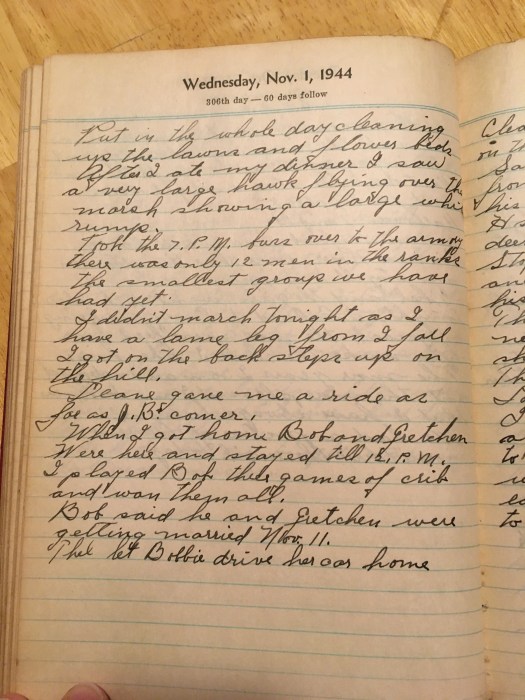 Wednesday, Nov. 1, 1944
306th day — 60 days follow
Put in the whole day cleaning
up the lawns and flower beds
After I ate my dinner I saw
a very large hawk flying over the
marsh showing a large whi
rump.
Took the 7. P.M. bus over to the armory
there was only 12 men in the ranks
the smallest group we have
had yet.
I didn't march tonight as I
have a lame leg from I fall
I got on the back steps up on
the hill.
Deane gave me a ride as
far as J.B's corner.
When I got home Bob and Gretchen
Were here and stayed till 12. P.M.
I played Bob three games of crib
and won them all.
Bob said he and Gretchen were
getting married Nov. 11.
let Bobbie drive her car home
Cle
on th
Sa
from
his
H
deer
St
an
hi
Th
ne
sh
Th
I
a
to
u
ea
to